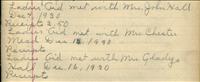 Ladies Aid met with Mrs. John Hall
Dec 1930
Receipts 2.50
Ladies Aid met with Mrs Chester
Mead Dec. 18, 1930
Receipts
Ladies Aid met with Mrs. Gladys
Hall Dec. 16, 1930
Receipts